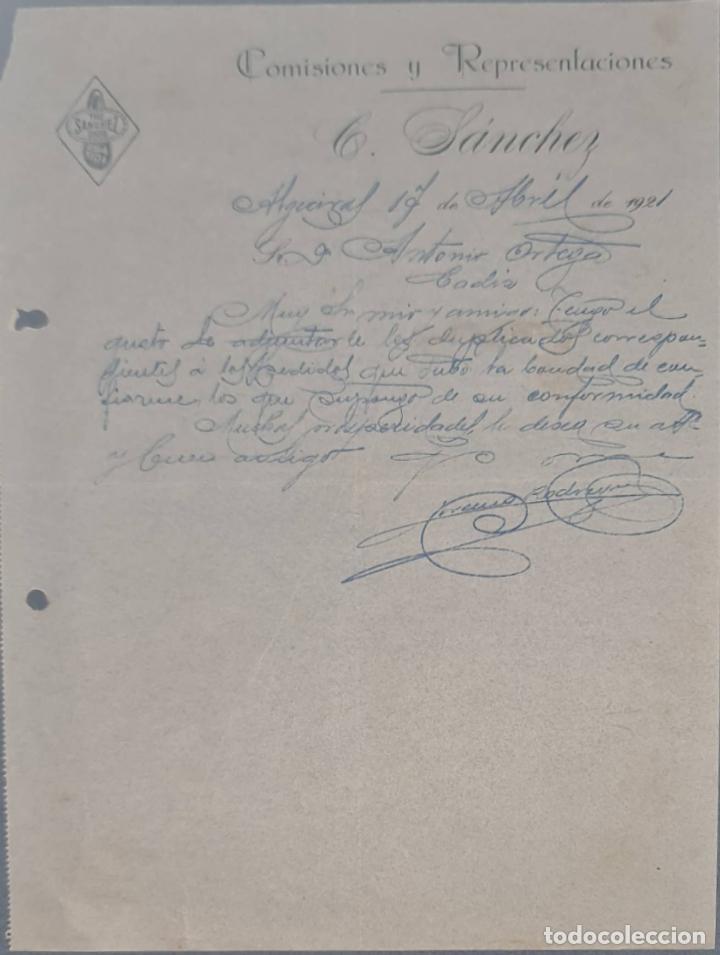 Comisiones y Representaciones
THE
SANCHEZ
C. Sánchez
Algeciras 17 de Abril de 1921
Sr. D. Antonio Ortega
Cadiz
Muy Sr mio y amigo: Tengo el
gusto de adjuntarle los duplicados correspon-
dientes á los pedidos que tubo la bondad de con-
fiarme, los que supongo de su conformidad.
Muchas prosperidades le desea su att
y buen amigo
todocoleccion.net